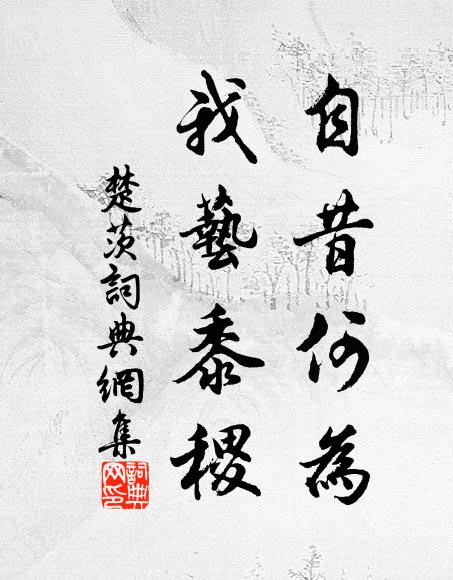 自昔何為
我藝黍稷
楚茨詞典網集
詞典網印